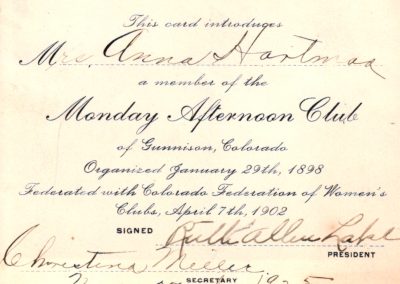 This card introduces
Mrs. Anna Hartman
a member of the
Monday Afternoon Club
of Gunnison, Colorado
Organized January 29th, 1898
Federated with Colorado Federation of Women's
Clubs, April 7th, 1902
SIGNED Ruth Allen Lake
PRESIDENT
Christena Miller
SECRETARY